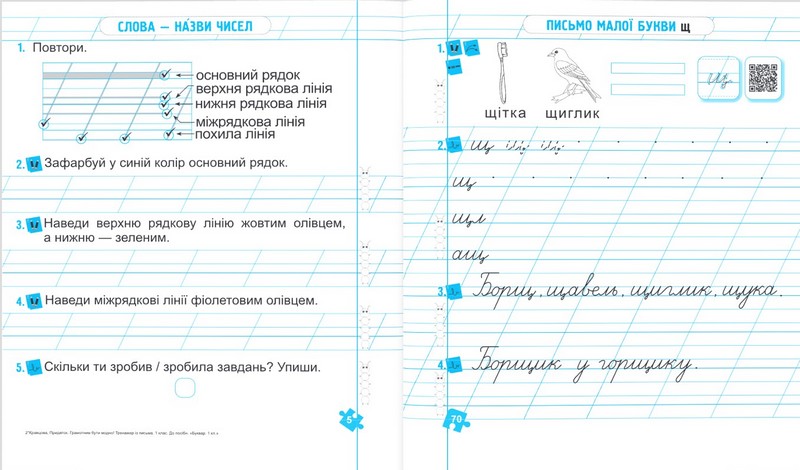 СЛОВА — НА́ЗВИ ЧИСЕЛ
1. Повтори.
основний рядок
верхня рядкова лінія
нижня рядкова лінія
міжрядкова лінія
похила лінія
2. Зафарбуй у синій колір основний рядок.
3. Наведи верхню рядкову лінію жовтим олівцем,
а нижню — зеленим.
4. Наведи міжрядкові лінії фіолетовим олівцем.
5. Скільки ти зробив / зробила завдань? Упиши.
5
ПИСЬМО МАЛОЇ БУКВИ щ
1.
щітка щиглик
Щ щ
2. щ щ щ
щ
щл
ащ
3. Борщ, щавель, щиглик, щука.
4. Борщик у горщику.
70